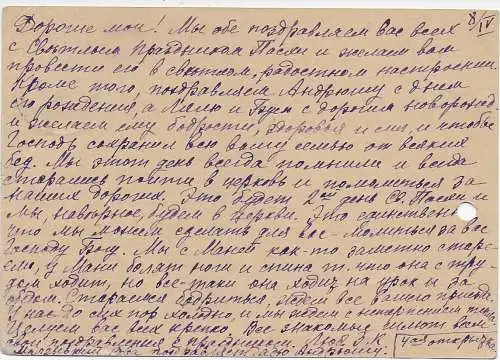 8/IV
Дорогие мои! Мы обе поздравляем вас всех
с Светлым праздником Пасхи и желаем вам
провести его в светлом, радостном настроении.
Кроме того, поздравляем Андрюшу с днем
его рождения, а Лелю и с дорогим новорожд.
и желаем ему бодрости, здоровья и сил и чтобы
Господь сохранил всю вашу семью от всяких
бед. Мы этот день всегда помнили и всегда
старались пойти в церковь и помолиться за
наших дорогих. Это будет 2ой день Св. Пасхи и
мы, наверное, будем в церкви. Это единственно
что мы можем сделать для вас - молиться за вас
Господу Богу. Мы с Маней как-то заметно старе-
ем, у Мани болят ноги и спина т. что она с тру-
дом ходит, но все-таки она ходит на урок и за
обедом. Стараемся бодриться, ждем все вашего приезда
У нас до сих пор холодно, и мы ждем с нетерпением
Целуем вас всех крепко. Все знакомые шлют вам
свои поздравления с праздником.